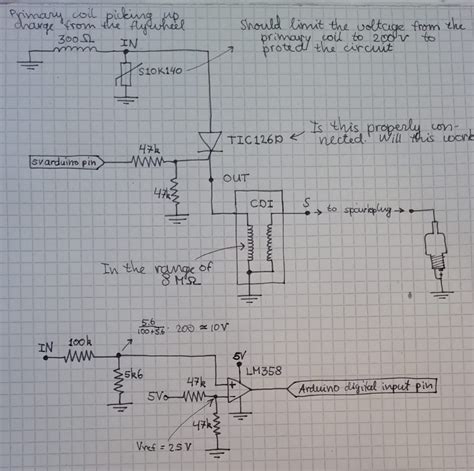 Primary coil picking up
charge from the flywheel
300Ω
IN
Should limit the voltage from the
primary coil to 200V to
protect the circuit
S10K140
TIC126D
Is this properly con-
nected. Will this work
5V arduino pin
47k
47k
OUT
CDI
S
to sparkplug
In the range of
8MΩ
IN
100k
5.6
100+5.6 · 200 ≈ 10V
5k6
5V
LM358
5V
47k
47k
+
-
Arduino digital input pin
Vref = 2.5V